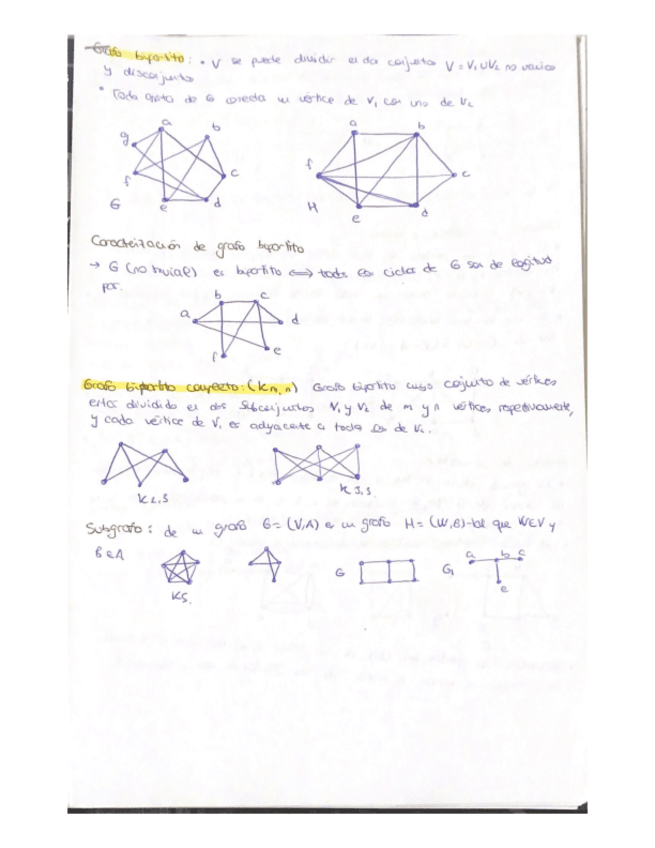 Grafo bipartito: • V se puede dividir en dos conjuntos V = V₁ ∪ V₂ no vacios
y disconjuntos
• Toda arista de G conecta un vértice de V₁ con uno de V₂
a
b
g
f
c
G
e
d
a
b
f
c
H
e
d
Caracterización de grafo bipartito
→ G (no trivial) es bipartito ⟺ todos los ciclos de G son de longitud
par.
b
c
a
d
f
e
Grafo bipartito completo: (Km,n) Grafo bipartito cuyo conjunto de vértices
estan dividido en dos subconjuntos V₁ y V₂ de m y n vértices respetivamente,
y cada vértice de V₁ es adyacente a todos los de V₂.
K2,3
K3,3
Subgrafo: de un grafo G = (V,A) es un grafo H = (W,B) tal que W∈V y
B∈A
K5.
G
G₁
a
b
c
e